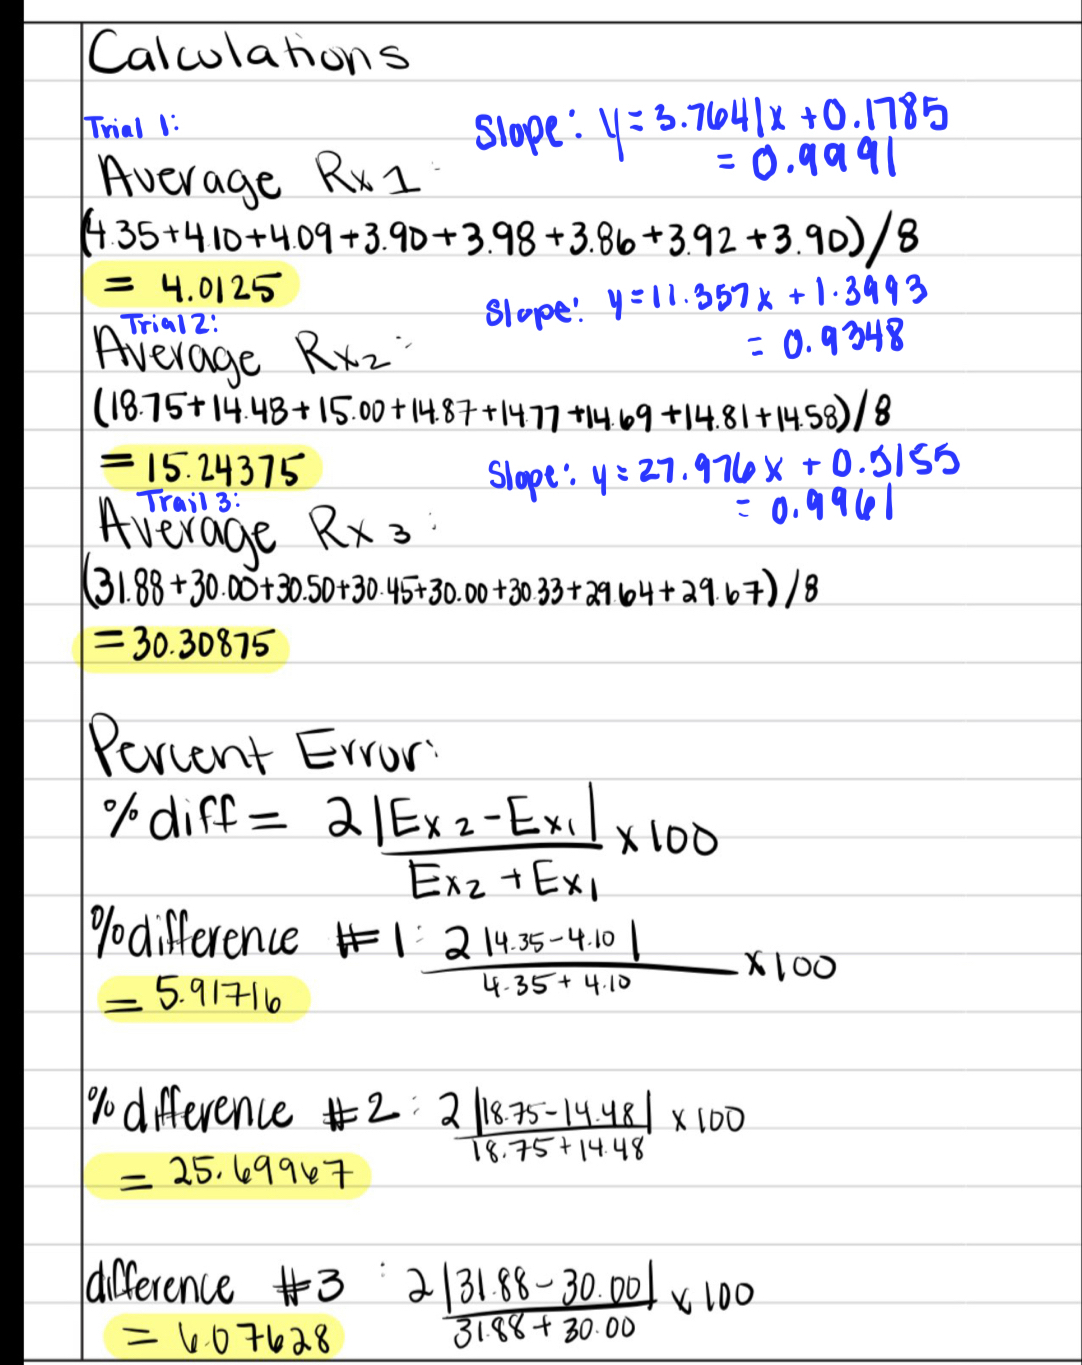 Calculations
Trial 1:
Slope: y = 3.7641x + 0.1785
= 0.9991
Average Rx1:
(4.35+4.10+4.09+3.90+3.98+3.86+3.92+3.90)/8
= 4.0125
Slope: y = 11.357x + 1.3993
= 0.9348
Trial 2:
Average Rx2:
(18.75+14.48+15.00+14.87+14.77+14.69+14.81+14.58)/8
= 15.24375
Slope: y = 27.976x + 0.5155
= 0.9961
Trail 3:
Average Rx3:
(31.88+30.00+30.50+30.45+30.00+30.33+29.64+29.67)/8
= 30.30875
Percent Error:
% diff = 2 |Ex2 - Ex1| x 100
Ex2 + Ex1
% difference #1: 2 |4.35-4.10| x 100
4.35 + 4.10
= 5.91716
% difference #2: 2 |18.75-14.48| x 100
18.75+14.48
= 25.69967
difference #3: 2 |31.88-30.00| x 100
31.88 + 30.00
= 6.07628